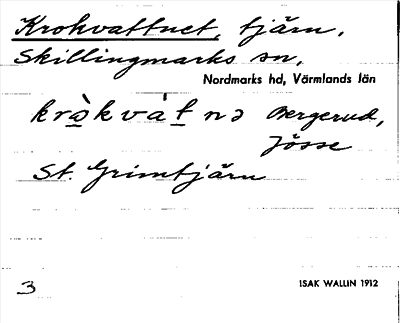 Krokvattnet, tjärn,
Skillingmarks sn,
Nordmarks hd, Värmlands län
krὼkvàt nə Bergerud,
Jösse
St. Grimtjärn
3
ISAK WALLIN 1912